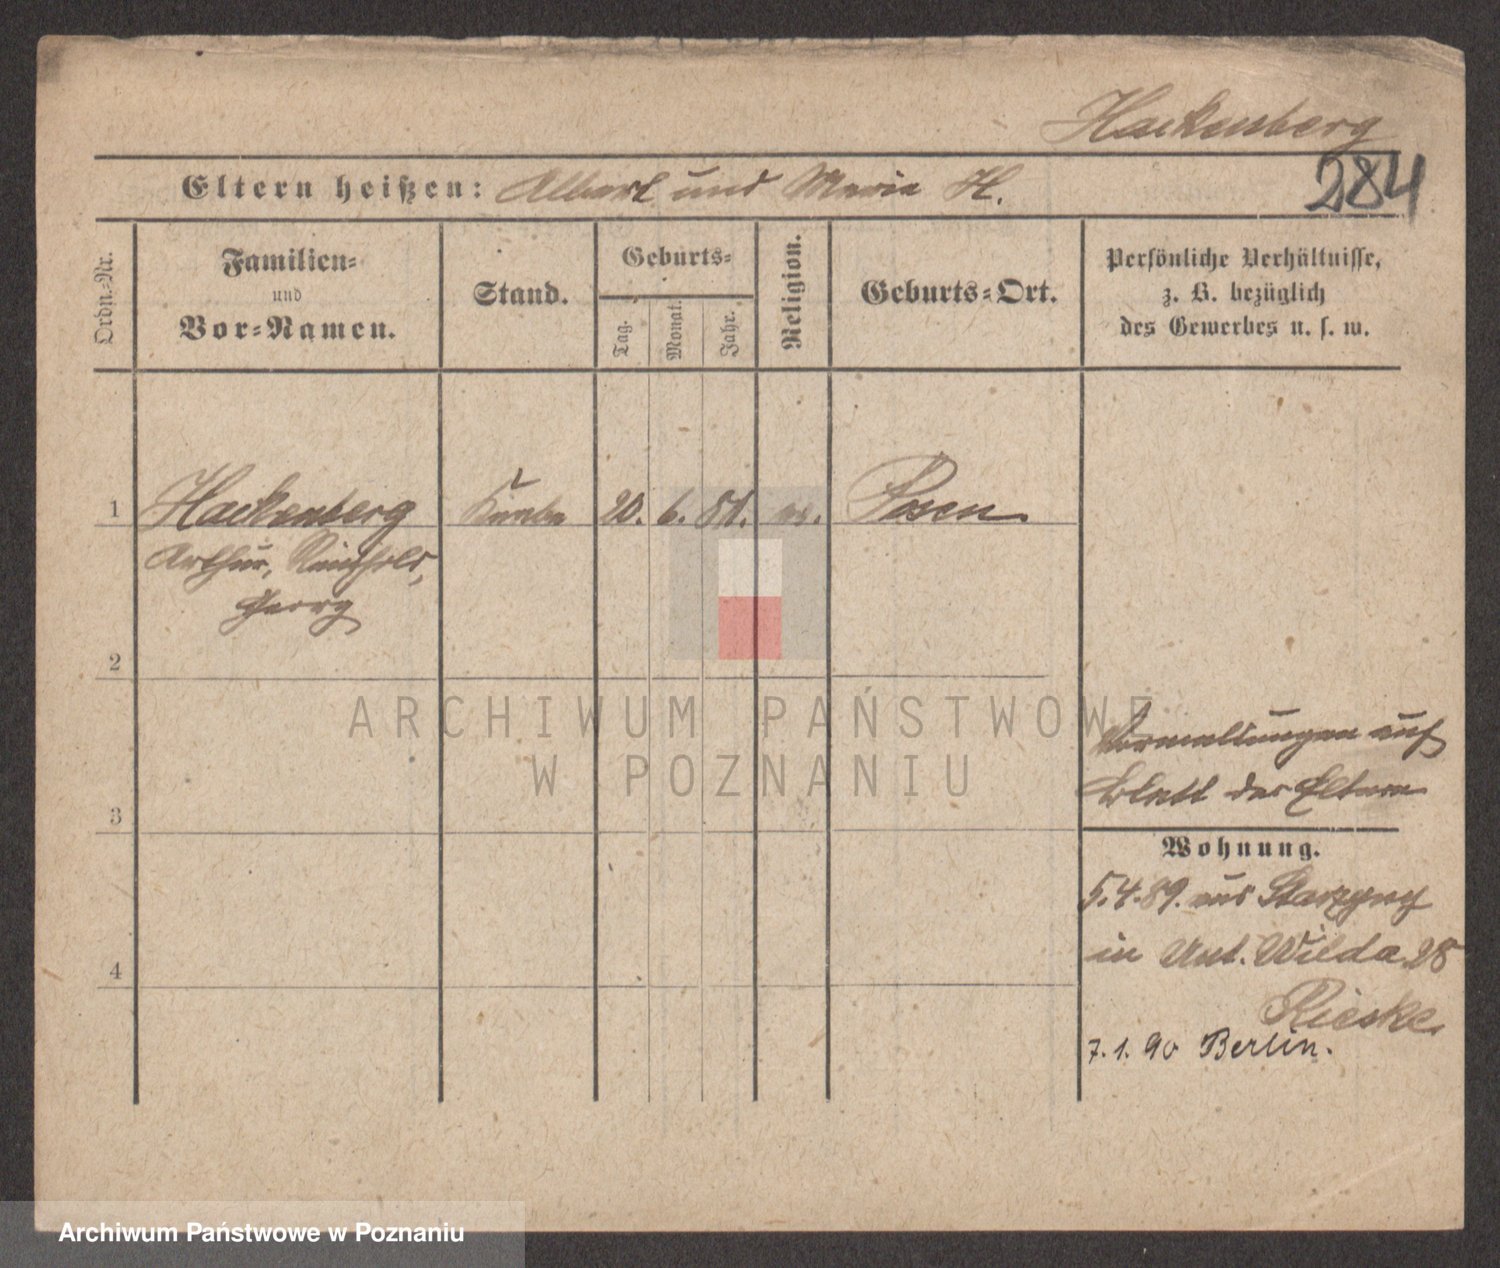 Hackenberg
284
Eltern heißen: Albert und Marie H.
Ordn.-Nr.
Familien- und Vor-Namen.
Stand.
Geburts-
Tag.
Monat.
Jahr.
Religion.
Geburts-Ort.
Persönliche Verhältnisse,
z. B. bezüglich
des Gewerbes u. s. w.
1 Hackenberg Knabe 20. 6. 81. ev. Posen
Arthur, Reinhold,
Georg
2
3
4
ARCHIWUM PAŃSTWOWE
W POZNANIU
auf
Blatt der Eltern
Wohnung.
5.4.89. aus
in Unt. Wilda 28
Rieske
7.1.90 Berlin.
Archiwum Państwowe w Poznaniu